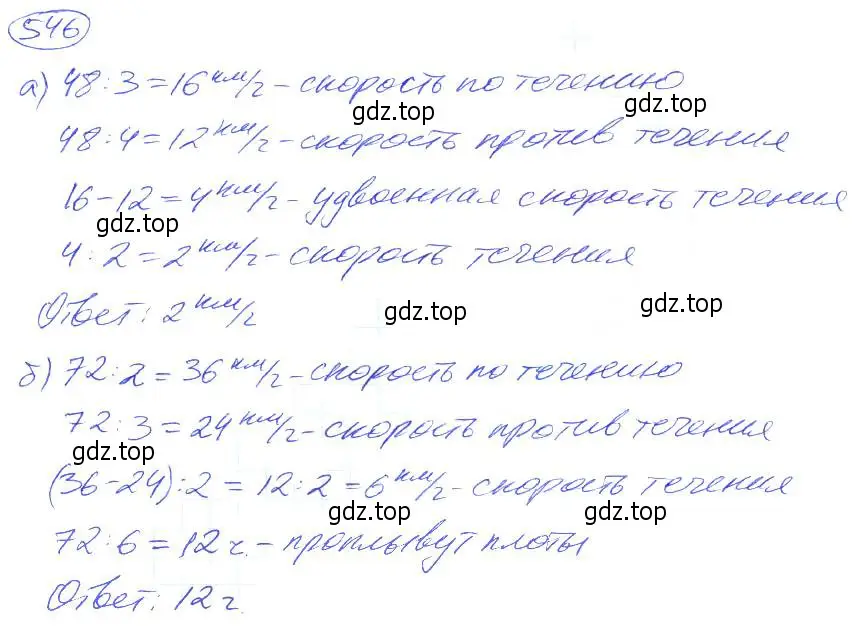 546
а) 48:3=16 км/ч - скорость по течению
gdz.top gdz.top
48:4=12 км/ч - скорость против течения
16-12=4 км/ч - удвоенная скорость течения
gdz.top
4:2=2 км/ч - скорость течения
Ответ: 2 км/ч
gdz.top gdz.top
б) 72:2=36 км/ч - скорость по течению
72:3=24 км/ч - скорость против течения
gdz.top
(36-24):2=12:2=6 км/ч - скорость течения
gdz.top gdz.top
72:6=12 ч. - проплывут плоты
Ответ: 12 ч.